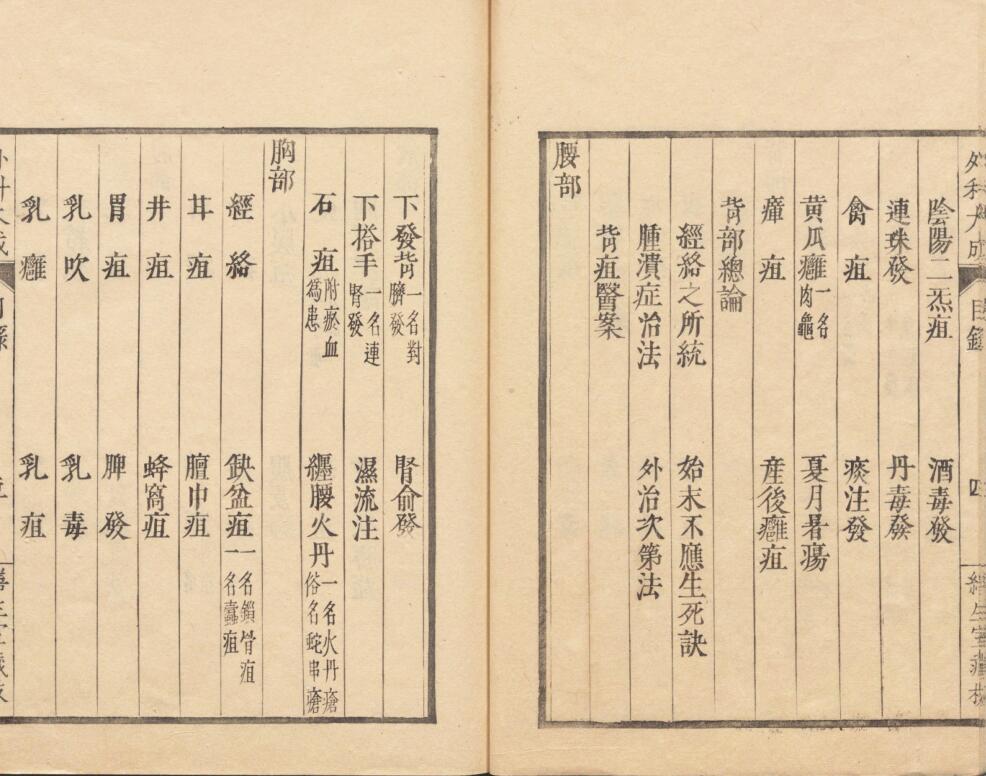 外科大成 目錄 四
陰陽二炁疽 酒毒發
連珠發 丹毒發
禽疽 痰注發
黃瓜癰一名肉龜 夏月暑瘍
瘴疽 產後癰疽
背部總論
經絡之所統 始末不應生死訣
腫潰症治法 外治次第法
背疽醫案
腰部
下發背一名對臍發 腎俞發
下搭手一名連腎發 濕流注
石疽附瘀血爲患 纏腰火丹一名火丹瘡俗名蛇串瘡
胸部
經絡 缺盆疽一名鎖骨疽一名蠹疽
井疽 蜂窩疽
胃疽 脾發
乳吹 乳毒
乳癰 乳疽